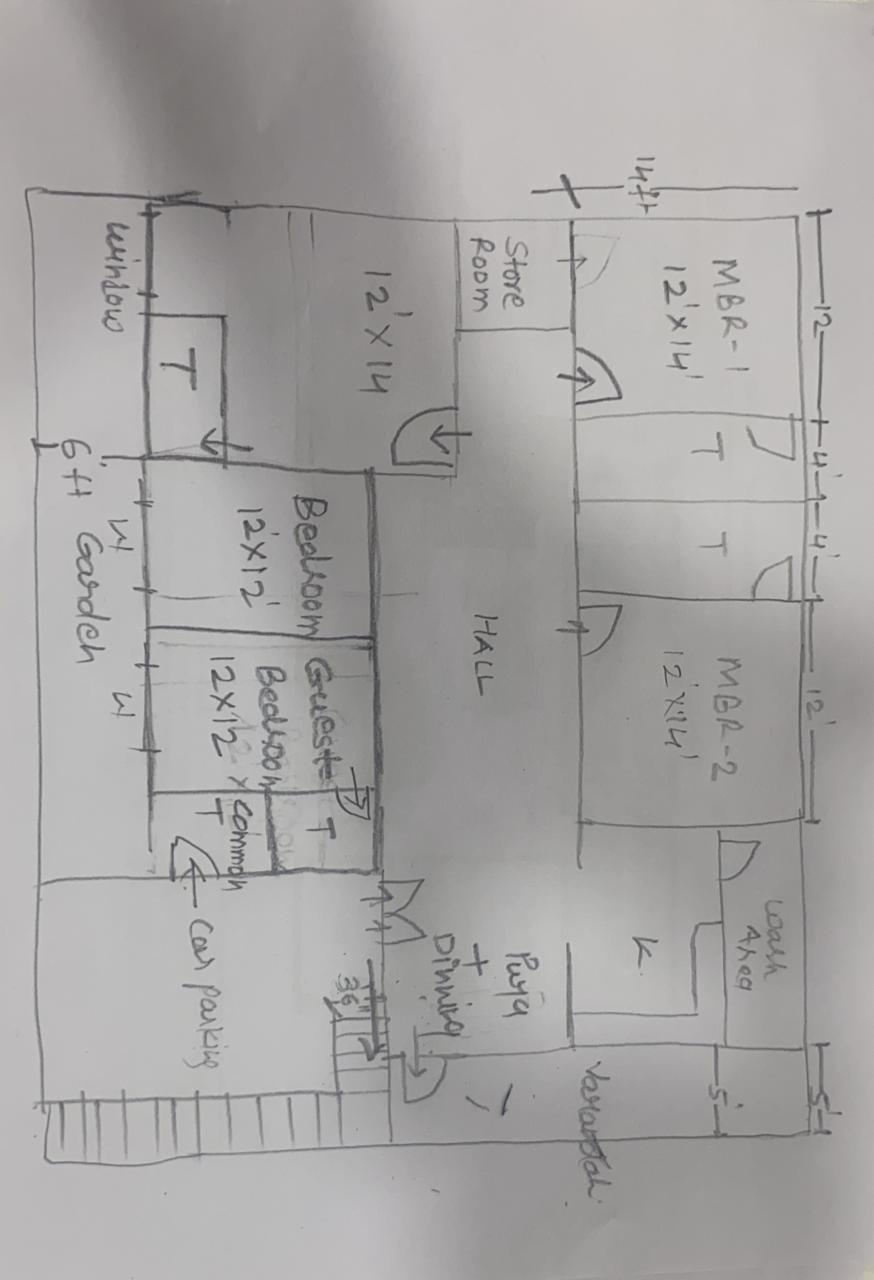 12
4'
4'
12'
5'
Wash
Area
MBR-1
12'X14'
T
T
MBR-2
12'X14'
5'
14ft
K
Varandah
Store
Room
HALL
Puja
+
Dinning
12'X14
36"
Bedroom
12'X12'
Guest
Bedroom
12X12
T
Common
T
Car parking
T
Window
W
W
6 ft
Garden